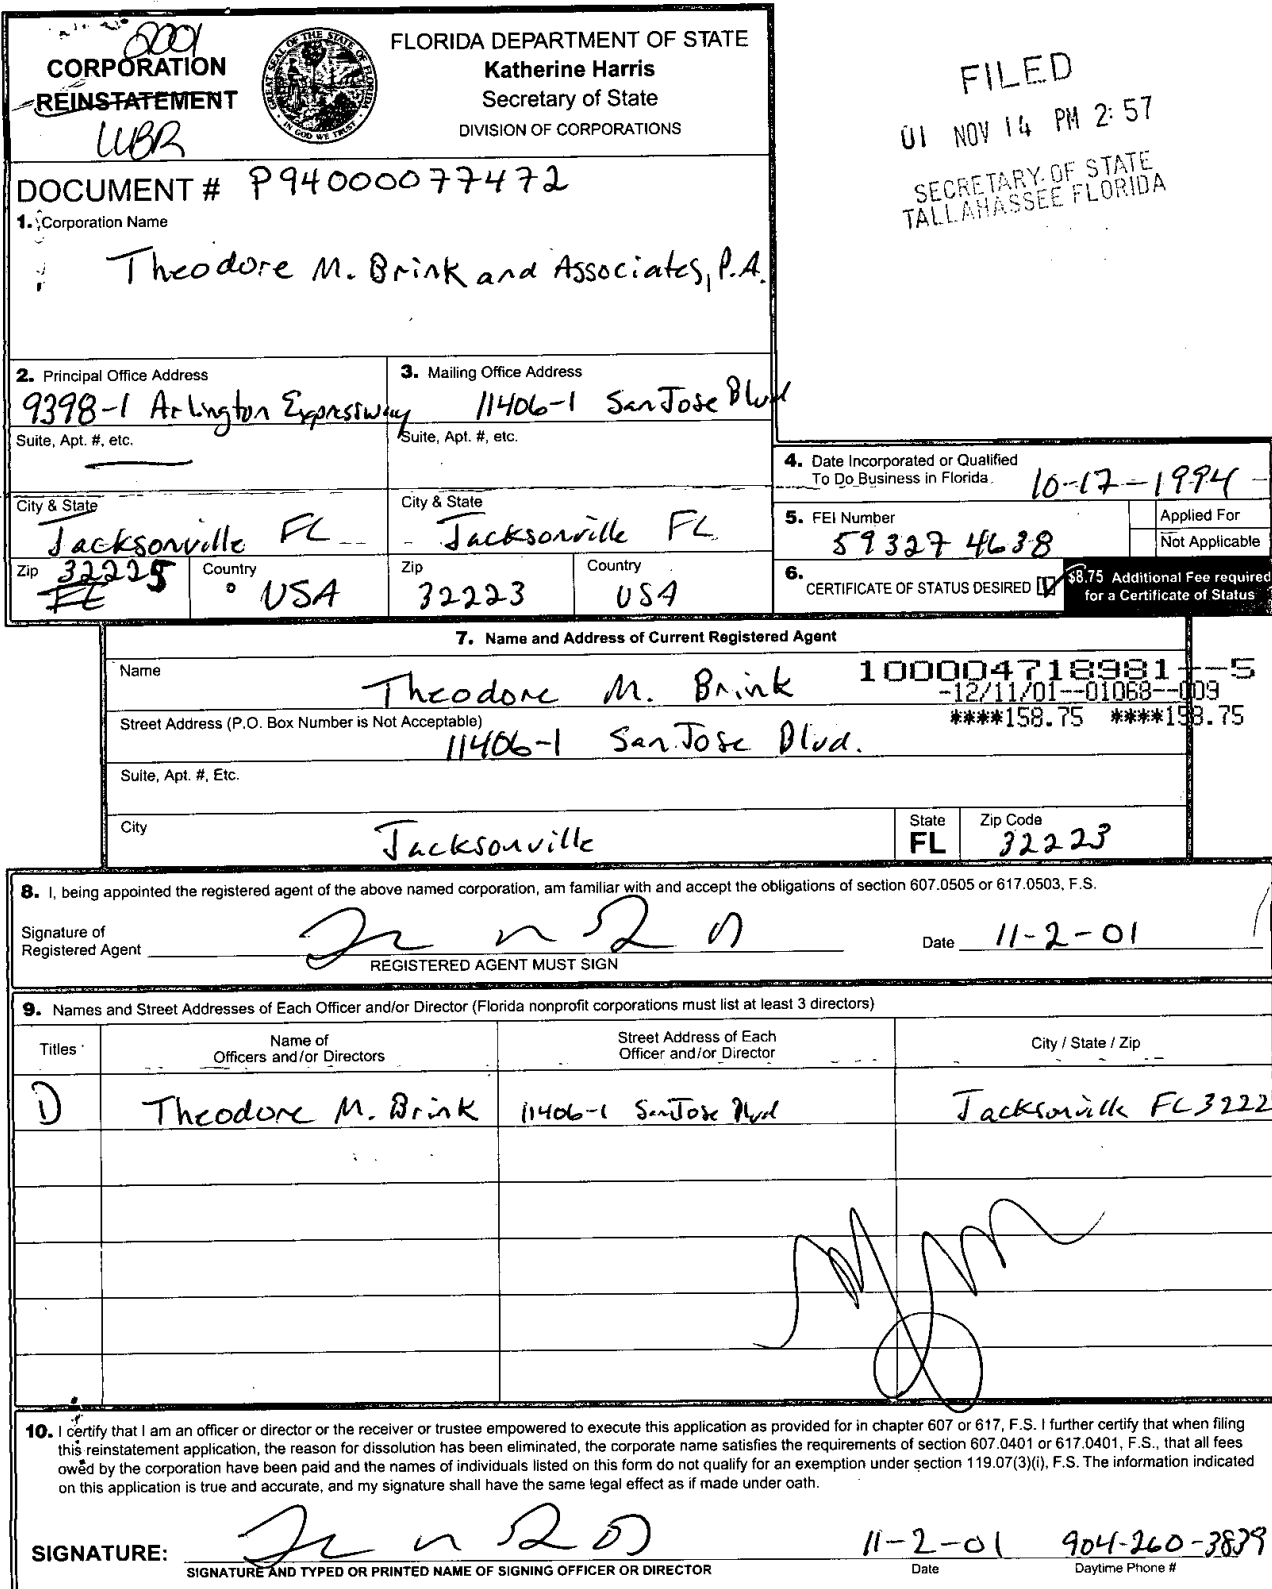 2001
CORPORATION
REINSTATEMENT
UBR
GREAT SEAL OF THE STATE OF FLORIDA
IN GOD WE TRUST
FLORIDA DEPARTMENT OF STATE
Katherine Harris
Secretary of State
DIVISION OF CORPORATIONS
FILED
01 NOV 14 PM 2:57
SECRETARY OF STATE
TALLAHASSEE FLORIDA
DOCUMENT # P94000077472
1. Corporation Name
Theodore M. Brink and Associates, P.A.
2. Principal Office Address
9398-1 Arlington Expressway
3. Mailing Office Address
11406-1 San Jose Blvd
Suite, Apt. #, etc.
Suite, Apt. #, etc.
4. Date Incorporated or Qualified
To Do Business in Florida 10-17-1994
City & State
Jacksonville FL
City & State
Jacksonville FL
5. FEI Number
59327 4638
Applied For
Not Applicable
Zip 32225
FL
Country
USA
Zip
32223
Country
USA
6. CERTIFICATE OF STATUS DESIRED
$8.75 Additional Fee required
for a Certificate of Status
7. Name and Address of Current Registered Agent
Name
Theodore M. Brink
100004718981--5
-12/11/01--01068--009
****158.75 ****158.75
Street Address (P.O. Box Number is Not Acceptable)
11406-1 San Jose Blvd.
Suite, Apt. #, Etc.
City
Jacksonville
State
FL
Zip Code
32223
8. I, being appointed the registered agent of the above named corporation, am familiar with and accept the obligations of section 607.0505 or 617.0503, F.S.
Signature of
Registered Agent
REGISTERED AGENT MUST SIGN
Date 11-2-01
9. Names and Street Addresses of Each Officer and/or Director (Florida nonprofit corporations must list at least 3 directors)
Titles
Name of
Officers and/or Directors
Street Address of Each
Officer and/or Director
City / State / Zip
D
Theodore M. Brink
11406-1 San Jose Blvd
Jacksonville FL 3222
10. I certify that I am an officer or director or the receiver or trustee empowered to execute this application as provided for in chapter 607 or 617, F.S. I further certify that when filing
this reinstatement application, the reason for dissolution has been eliminated, the corporate name satisfies the requirements of section 607.0401 or 617.0401, F.S., that all fees
owed by the corporation have been paid and the names of individuals listed on this form do not qualify for an exemption under section 119.07(3)(i), F.S. The information indicated
on this application is true and accurate, and my signature shall have the same legal effect as if made under oath.
SIGNATURE:
11-2-01
904-260-3839
SIGNATURE AND TYPED OR PRINTED NAME OF SIGNING OFFICER OR DIRECTOR
Date
Daytime Phone #